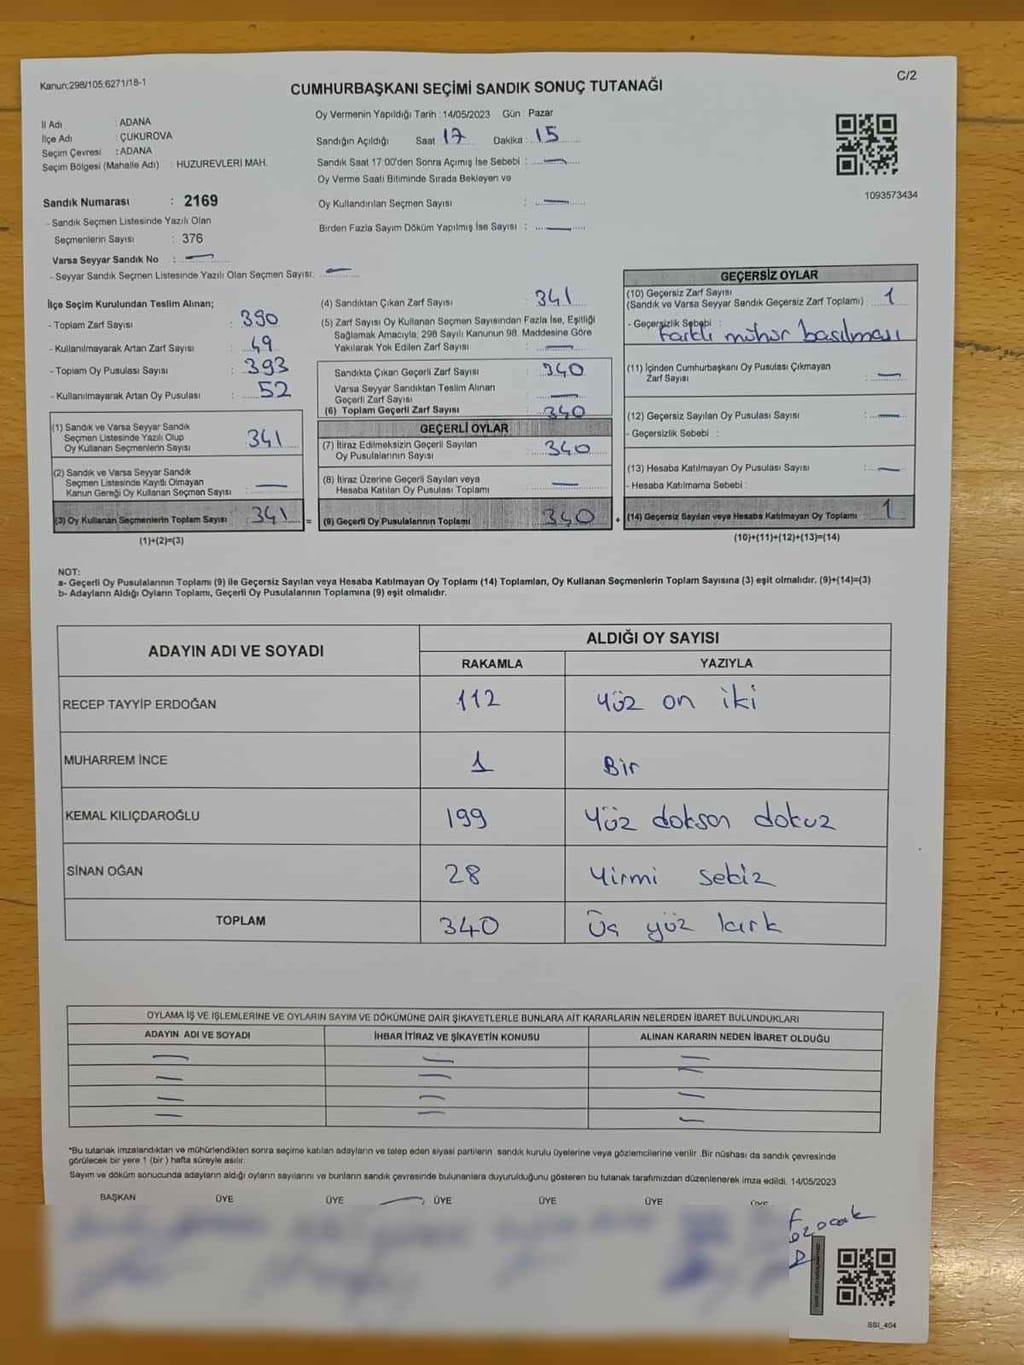 Kanun:298/105,6271/18-1
C/2
CUMHURBAŞKANI SEÇİMİ SANDIK SONUÇ TUTANAĞI
Oy Vermenin Yapıldığı Tarih : 14/05/2023 Gün : Pazar
İl Adı : ADANA
İlçe Adı : ÇUKUROVA
Seçim Çevresi : ADANA
Seçim Bölgesi (Mahalle Adı) : HUZUREVLERİ MAH.
Sandığın Açıldığı Saat 17 Dakika : 15
Sandık Saat 17 00'den Sonra Açımış İse Sebebi : —
Oy Verme Saati Bitiminde Sırada Bekleyen ve
Oy Kullandırılan Seçmen Sayısı : —
Birden Fazla Sayım Döküm Yapılmış İse Sayısı : —
1093573434
Sandık Numarası : 2169
- Sandık Seçmen Listesinde Yazılı Olan
Seçmenlerin Sayısı : 376
Varsa Seyyar Sandık No : —
- Seyyar Sandık Seçmen Listesinde Yazılı Olan Seçmen Sayısı: —
İlçe Seçim Kurulundan Teslim Alınan;
- Toplam Zarf Sayısı : 390
- Kullanılmayarak Artan Zarf Sayısı : 49
- Toplam Oy Pusulası Sayısı : 393
- Kullanılmayarak Artan Oy Pusulası : 52
(1) Sandık ve Varsa Seyyar Sandık
Seçmen Listesinde Yazılı Olup
Oy Kullanan Seçmenlerin Sayısı 341
(2) Sandık ve Varsa Seyyar Sandık
Seçmen Listesinde Kayıtlı Olmayan
Kanun Gereği Oy Kullanan Seçmen Sayısı —
(3) Oy Kullanan Seçmenlerin Toplam Sayısı 341
(1)+(2)=(3)
(4) Sandıktan Çıkan Zarf Sayısı : 341
(5) Zarf Sayısı Oy Kullanan Seçmen Sayısından Fazla İse, Eşitliği
Sağlamak Amacıyla, 298 Sayılı Kanunun 98. Maddesine Göre
Yakılarak Yok Edilen Zarf Sayısı : —
Sandıkta Çıkan Geçerli Zarf Sayısı : 340
Varsa Seyyar Sandıktan Teslim Alınan
Geçerli Zarf Sayısı —
(6) Toplam Geçerli Zarf Sayısı : 340
GEÇERLİ OYLAR
(7) İtiraz Edilmeksizin Geçerli Sayılan
Oy Pusulalarının Sayısı : 340
(8) İtiraz Üzerine Geçerli Sayılan veya
Hesaba Katılan Oy Pusulası Toplamı : —
= (9) Geçerli Oy Pusulalarının Toplamı 340
GEÇERSİZ OYLAR
(10) Geçersiz Zarf Sayısı
(Sandık ve Varsa Seyyar Sandık Geçersiz Zarf Toplamı) : 1
- Geçersizlik Sebebi :
Farklı mühür basılması
(11) İçinden Cumhurbaşkanı Oy Pusulası Çıkmayan
Zarf Sayısı : —
(12) Geçersiz Sayılan Oy Pusulası Sayısı : —
- Geçersizlik Sebebi :
(13) Hesaba Katılmayan Oy Pusulası Sayısı : —
- Hesaba Katılmama Sebebi :
+ (14) Geçersiz Sayılan veya Hesaba Katılmayan Oy Toplamı : 1
(10)+(11)+(12)+(13)=(14)
NOT:
a- Geçerli Oy Pusulalarının Toplamı (9) ile Geçersiz Sayılan veya Hesaba Katılmayan Oy Toplamı (14) Toplamları, Oy Kullanan Seçmenlerin Toplam Sayısına (3) eşit olmalıdır. (9)+(14)=(3)
b- Adayların Aldığı Oyların Toplamı, Geçerli Oy Pusulalarının Toplamına (9) eşit olmalıdır.
ADAYIN ADI VE SOYADI ALDIĞI OY SAYISI
RAKAMLA YAZIYLA
RECEP TAYYİP ERDOĞAN 112 Yüz on iki
MUHARREM İNCE 1 Bir
KEMAL KILIÇDAROĞLU 199 Yüz doksan dokuz
SİNAN OĞAN 28 Yirmi sekiz
TOPLAM 340 Üç yüz kırk
OYLAMA İŞ VE İŞLEMLERİNE VE OYLARIN SAYIM VE DÖKÜMÜNE DAİR ŞİKAYETLERLE BUNLARA AİT KARARLARIN NELERDEN İBARET BULUNDUKLARI
ADAYIN ADI VE SOYADI İHBAR İTİRAZ VE ŞİKAYETİN KONUSU ALINAN KARARIN NEDEN İBARET OLDUĞU
*Bu tutanak imzalandıktan ve mühürlendikten sonra seçime katılan adayların ve talep eden siyasi partilerin sandık kurulu üyelerine veya gözlemcilerine verilir. Bir nüshası da sandık çevresinde
görülecek bir yere 1 (bir) hafta süreyle asılır.
Sayım ve döküm sonucunda adayların aldığı oyların sayılarını ve bunların sandık çevresinde bulunanlara duyurulduğunu gösteren bu tutanak tarafımızdan düzenlenerek imza edildi. 14/05/2023
BAŞKAN ÜYE ÜYE ÜYE ÜYE ÜYE ÜYE
SSI_404